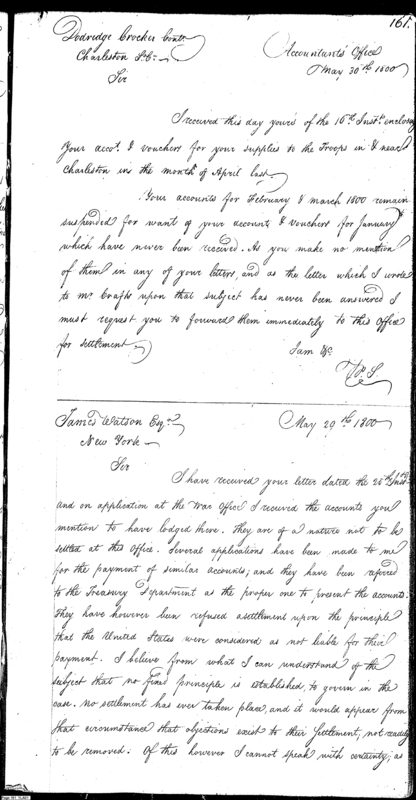 161.
Dodridge Crocker Contr
Charleston S.C.
Accountants' Office
May 30th 1800
Sir
I received this day yours of the 16th Inst. enclosing
your accot. & vouchers for your supplies to the Troops in & near
Charleston in the month of April last
Your accounts for February & March 1800 remain
suspended for want of your account & vouchers for January
which have never been received. As you make no mention
of them in any of your letters, and as the letter which I wrote
to Mr Crafts upon that subject has never been answered I
must request you to forward them immediately to this Office
for settlement
I am &c
Wm S.
James Watson Esqr
New York
May 29th 1800
Sir
I have received your letter dated the 26th Inst.
and on application at the War Office I received the accounts you
mention to have lodged there. They are of a nature not to be
settled at this Office. Several applications have been made to me
for the payment of similar accounts; and they have been referred
to the Treasury Department as the proper one to present the accounts.
They have however been refused a settlement upon the principle
that the United States were considered as not liable for their
payment. I believe from what I can understand of the
subject that no fixed principle is established, to govern in the
case. No settlement has ever taken place, and it would appear from
that circumstance that objections exist to their settlement, not readily
to be removed. Of this however I cannot speak with certainty; as